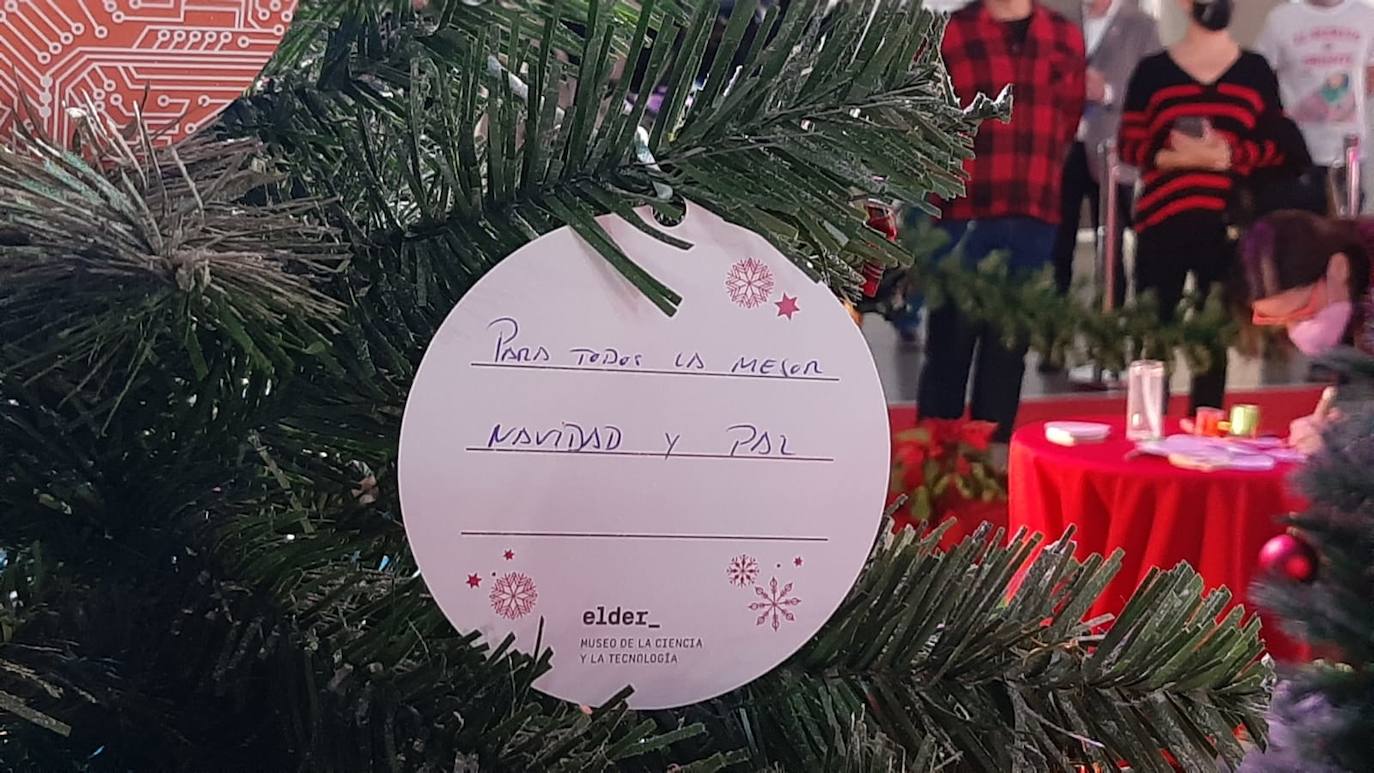 PARA TODOS LA MEJOR
NAVIDAD Y PAZ
elder_
MUSEO DE LA CIENCIA
Y LA TECNOLOGÍA